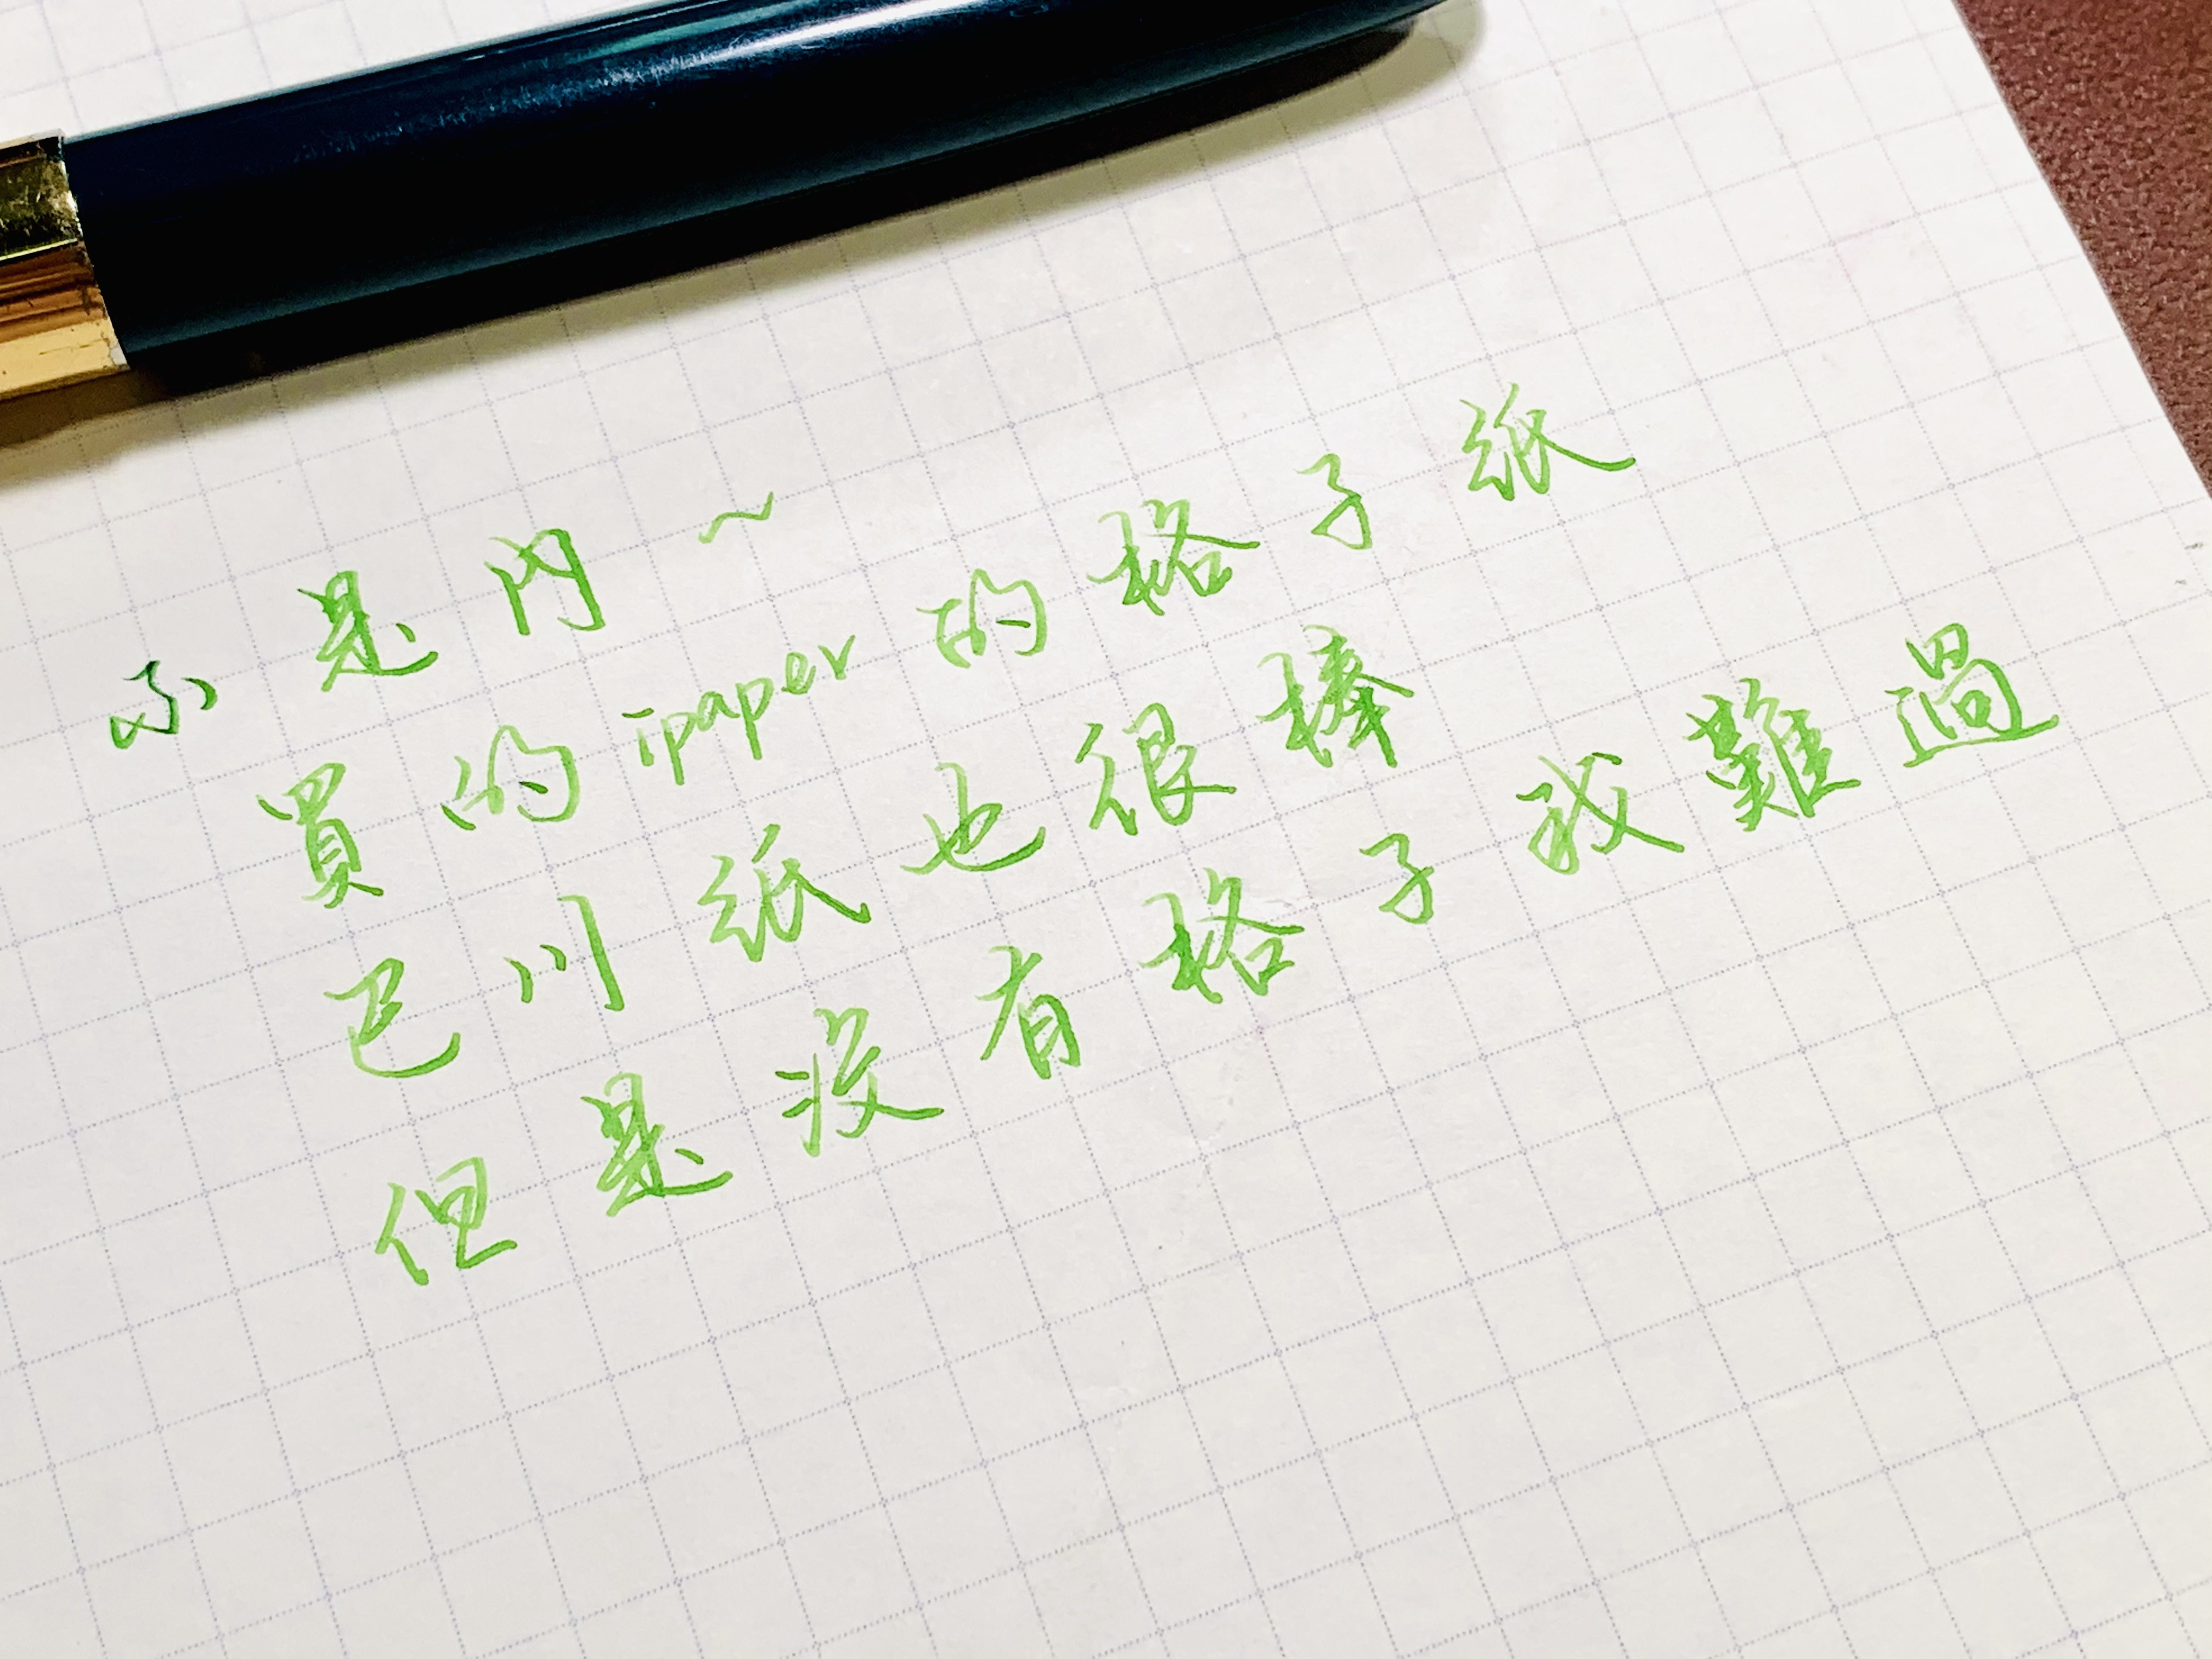 不是內~
買的ipaper的格子紙
巴川紙也很棒
但是沒有格子我難過